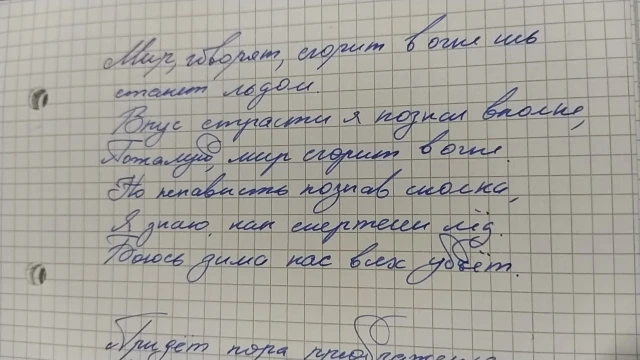 Мир, говорят, сгорит в огне иль
станет льдом.
Вкус страсти я познал вполне,
Пожалуй, мир сгорит в огне.
Но ненависть познав сполна,
Я знаю, как смертелен лёд.
Боюсь зима нас всех убьёт.
Придёт пора